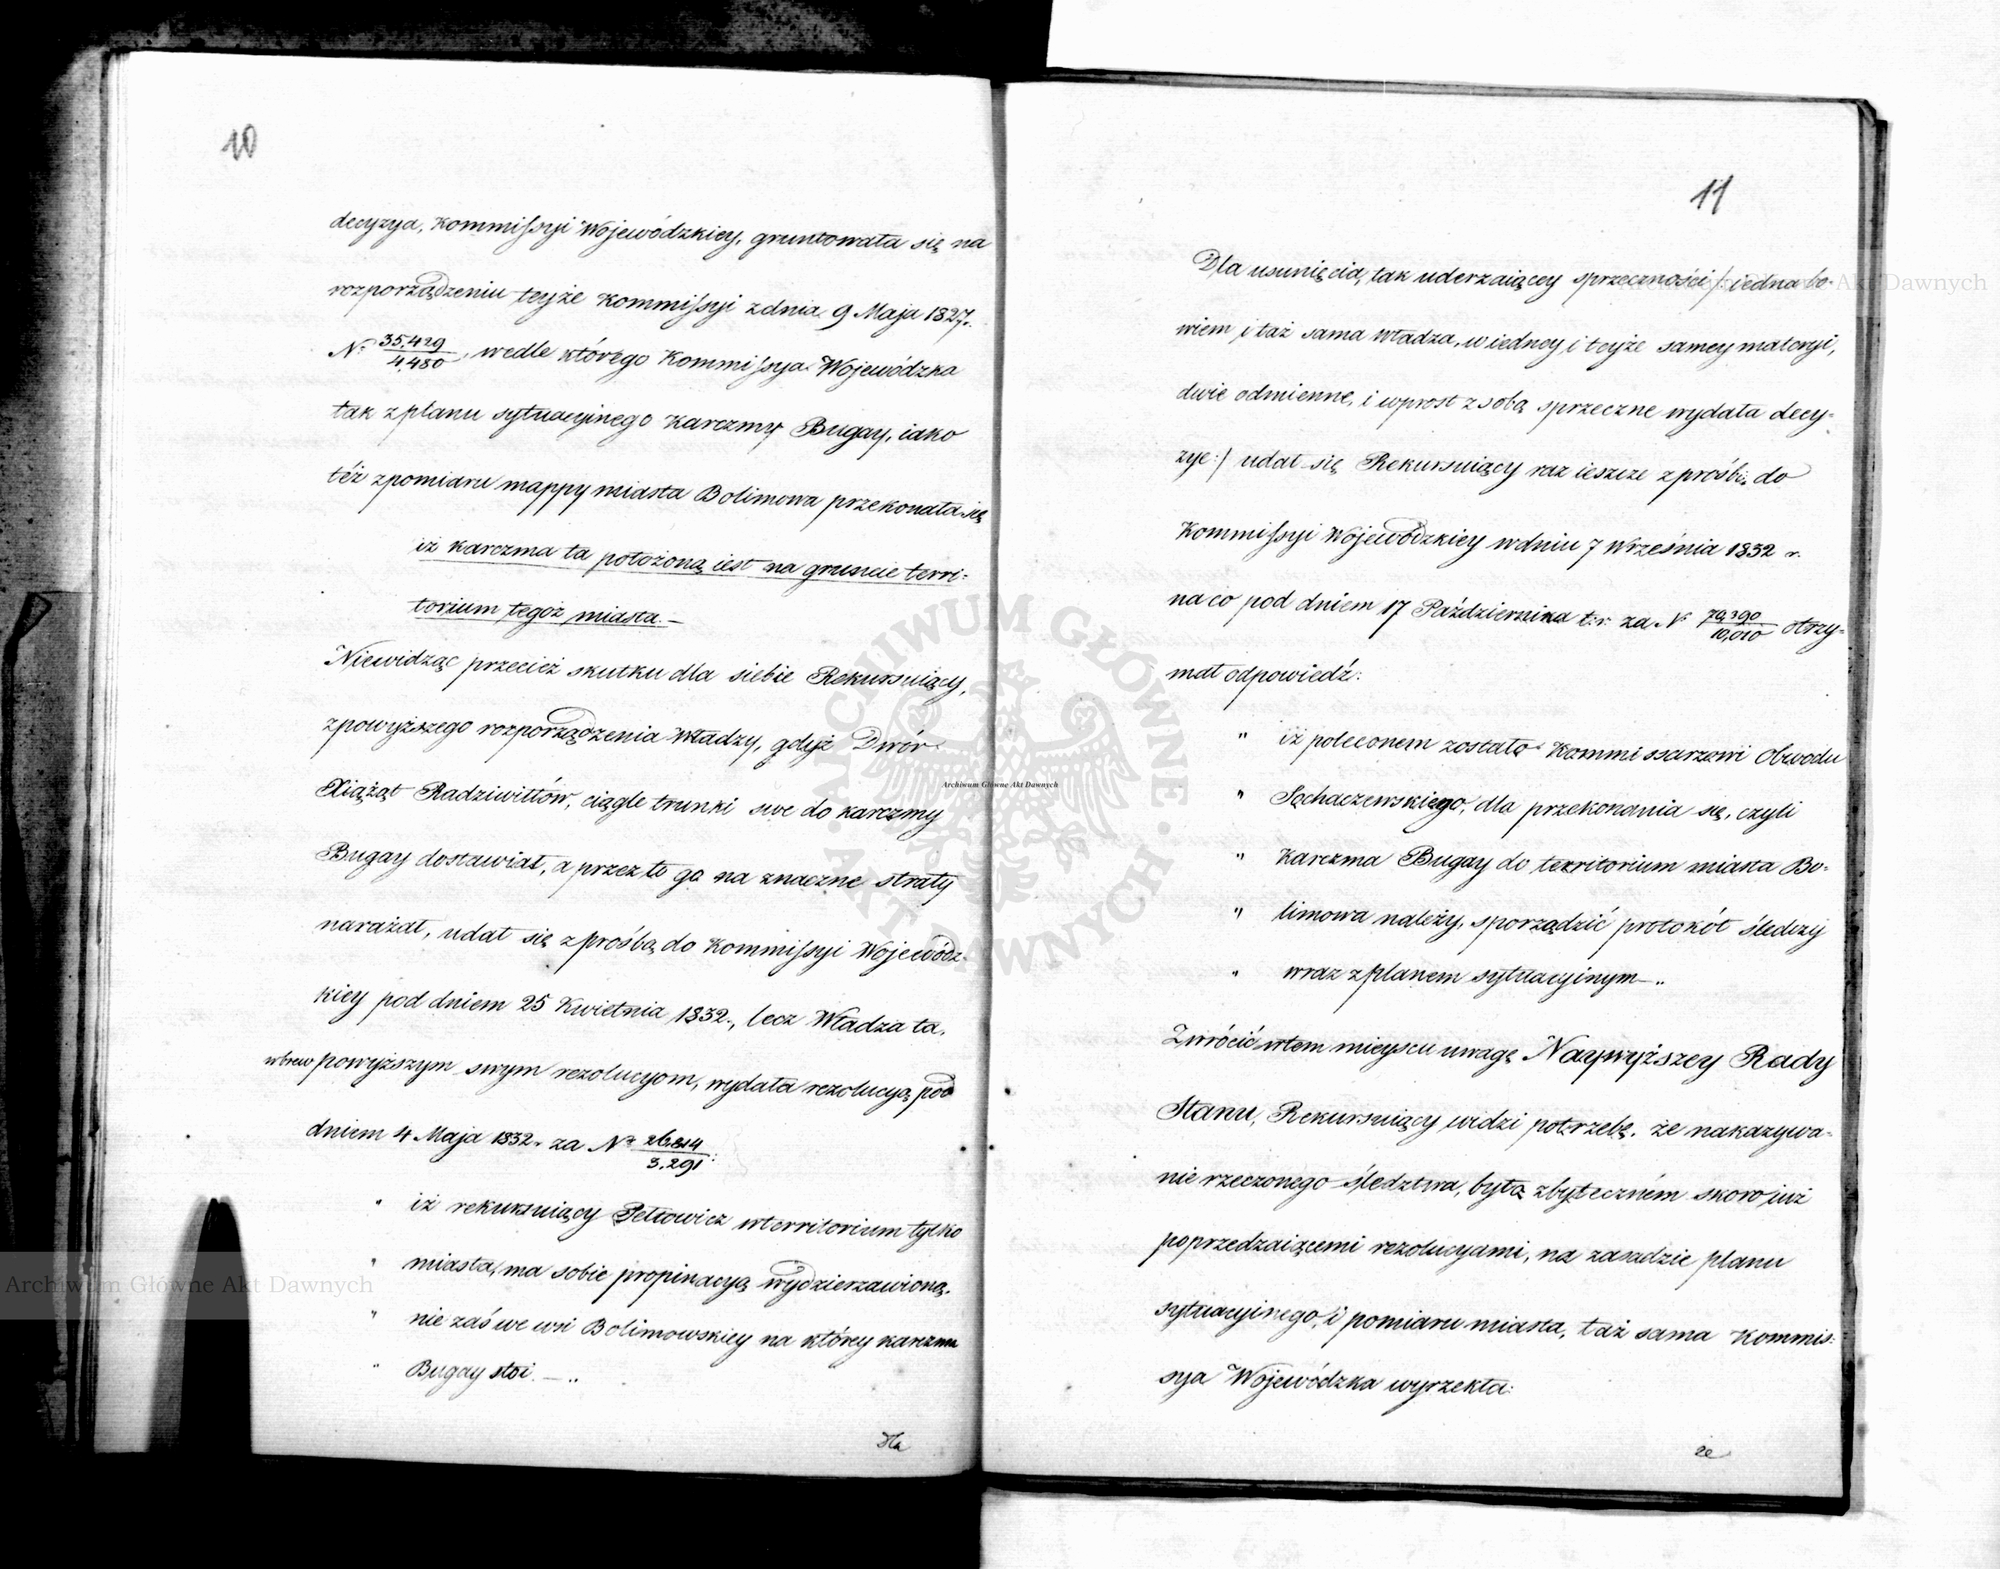 10
decyzya, Kommissyi Wojewódzkiey, gruntowała się na
rozporządzeniu teyże Kommissyi z dnia 9 Maja 1827.
N: 35,429/4,480, wedle którego Kommissya Wojewódzka
tak z planu sytuacyinego Karczmy Bugay, iako
téż z pomiaru mappy miasta Bolimowa przekonała się
iż karczma ta położoną iest na gruncie terri=
torium tegoż miasta. —
Niewidząc przecież skutku dla siebie Rekursuiący,
z powyższego rozporządzenia Władzy, gdyż Dwór
Xiążąt Radziwiłłów, ciągle trunki swe do karczmy
Bugay dostawiał, a przez to go na znaczne straty
narażał, udał się z prośbą do Kommissyi Wojewódz=
kiey pod dniem 25 Kwietnia 1832., lecz Władza ta,
wbrew powyższym swym rezolucyom, wydała rezolucyą pod
dniem 4 Maja 1832. za Nr 26,814/3,291:
" iż rekursuiący Petrowicz w territorium tylko
" miasta, ma sobie propinacyą wydzierzawioną,
" nie zaś we wsi Bolimowskiey na którey karczma
" Bugay stoi. — "
Dla
11
Dla usunięcia, tak uderzaiącey sprzeczności /: iedna bo=
wiem i taż sama Władza, w iedney i teyże samey materyi,
dwie odmienne, i wprost z sobą sprzeczne wydała decy=
zye :/ udał się Rekursuiący raz ieszcze z prośbą do
Kommissyi Wojewódzkiey w dniu 7 Września 1832 r.
na co pod dniem 17 Października t: r: za Nr 79,390/10,010 otrzy=
mał odpowiedź:
" iż poleconem zostało Kommissarzowi Obwodu
" Sochaczewskiego, dla przekonania się, czyli
" Karczma Bugay do territorium miasta Bo=
" limowa należy, sporządzić protokół śledczy
" wraz z planem sytuacyinym — "
Zwrócić w tem mieyscu uwagę Naywyższey Rady
Stanu, Rekursuiący widzi potrzebę, że nakazywa=
nie rzeczonego śledztwa, było zbyteczném skoro iuż
poprzedzaiącemi rezolucyami, na zasadzie planu
sytuacyinego, i pomiaru miasta, taż sama Kommis=
sya Wojewódzka wyrzekła:
że
Archiwum Główne Akt Dawnych
ARCHIWUM GŁÓWNE AKT DAWNYCH
Archiwum Główne Akt Dawnych
Archiwum Główne Akt Dawnych